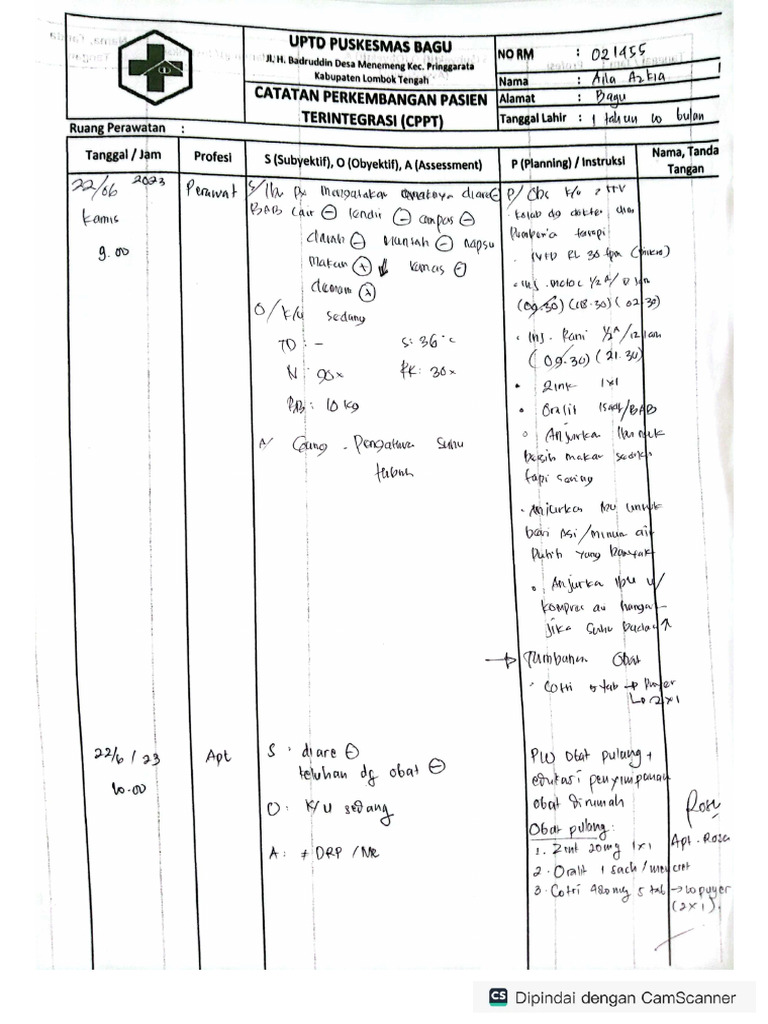 UPTD PUSKESMAS BAGU
Jl. H. Badruddin Desa Menemeng Kec. Pringgarata
Kabupaten Lombok Tengah
CATATAN PERKEMBANGAN PASIEN
TERINTEGRASI (CPPT)
NO RM : 021455
Nama : Aila Azkia
Alamat : Bagu
Tanggal Lahir : 1 tahun 10 bulan
Ruang Perawatan :
Tanggal / Jam
Profesi
S (Subyektif), O (Obyektif), A (Assessment)
P (Planning) / Instruksi
Nama, Tanda
Tangan
22/06 2023
Kamis
9.00
Perawat
S/ Ibu px mengatakan anaknya diare ⊖
BAB cair ⊖ lendir ⊖ ampas ⊖
darah ⊖ muntah ⊖ napsu
makan (+) ↓ lemas ⊖
demam
O/ K/U sedang
TD : - S : 36 °c
N : 90x RR : 30x
BB : 10 kg
A/ Pengaturan suhu
tubuh
P/ Obs K/U + TTV
kolab dg dokter
terapi
. IVFD RL 30 tpm (mikro)
(09.30) (18.30) (02.30)
. Inj. Rani 1/2 A/12 jam
(09.30) (21.30)
• Zink 1x1
• Oralit 1 sach/BAB
• Anjurka Ibu
makan sedikit
tapi sering
. Anjurkan Ibu untuk
beri ASI/minum air
putih yang banyak
• Anjurka Ibu u/
kompres air hangat
jika suhu badan ↑
→ Tambahan Obat
. Cotri 5 tab → Puyer
↳ 2x1
22/6 / 23
10.00
Apt
S : diare ⊖
keluhan dg obat ⊖
O : K/U sedang
A : ≠ DRP / MR
obat pulang +
edukasi penyimpanan
obat dirumah
Obat pulang :
1. Zink 20mg 1x1
2. Oralit 1 sach / mencret
3. Cotri 480mg 5 tab → 10 puyer
(2x1).
Apt. Rosa
CS Dipindai dengan CamScanner